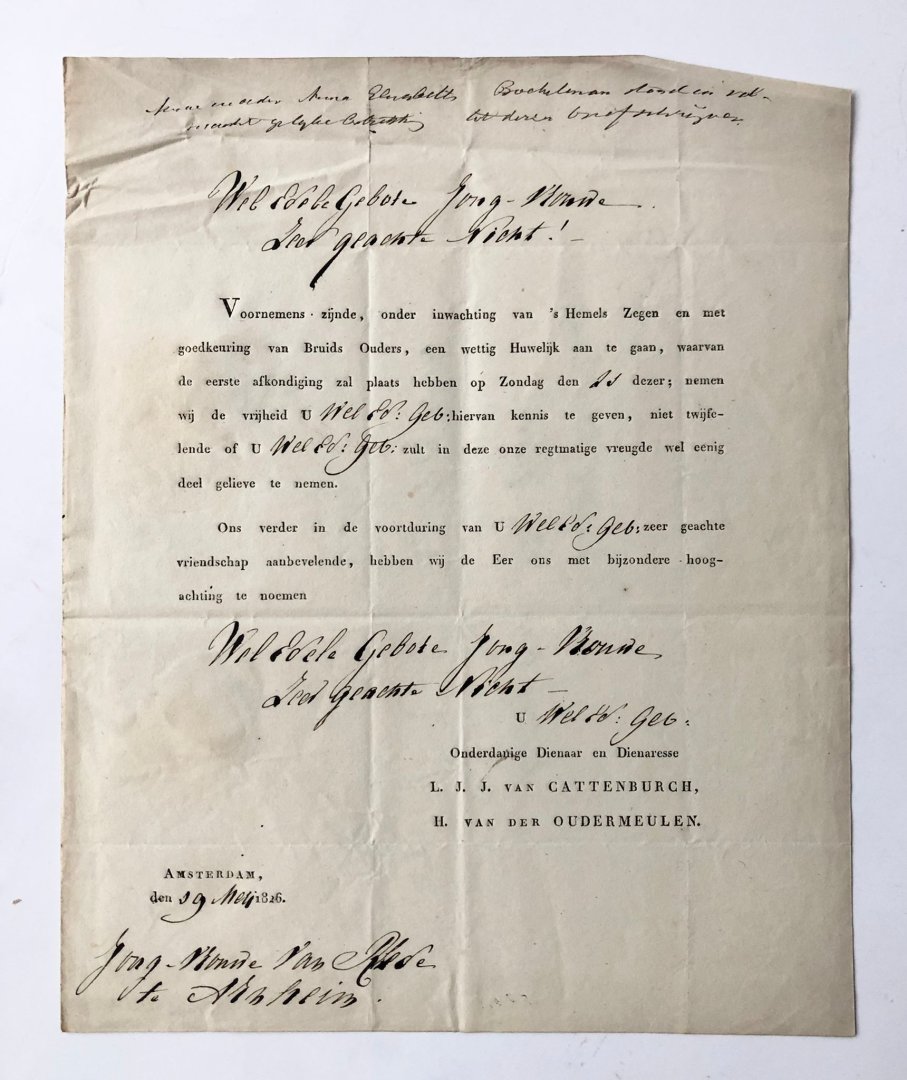 moeder Anna Elisabeth Bockelman stond in
tot dezen briefschrijver
Wel Edele Gebore Jong-Vrouwe
Zeer geachte Nicht! –
Voornemens zijnde, onder inwachting van 's Hemels Zegen en met
goedkeuring van Bruids Ouders, een wettig Huwelijk aan te gaan, waarvan
de eerste afkondiging zal plaats hebben op Zondag den 21 dezer; nemen
wij de vrijheid U Wel Ed: Geb: hiervan kennis te geven, niet twijfe-
lende of U Wel Ed: Geb: zult in deze onze regtmatige vreugde wel eenig
deel gelieve te nemen.
Ons verder in de voortduring van U Wel Ed: Geb: zeer geachte
vriendschap aanbevelende, hebben wij de Eer ons met bijzondere hoog-
achting te noemen
Wel Edele Gebore Jong-Vrouwe
Zeer geachte Nicht –
U Wel Ed: Geb:
Onderdanige Dienaar en Dienaresse
L. J. J. VAN CATTENBURCH,
H. VAN DER OUDERMEULEN.
AMSTERDAM,
den 19 Meij 1826.
Jong-Vrouwe Van Rede
te Arnheim.